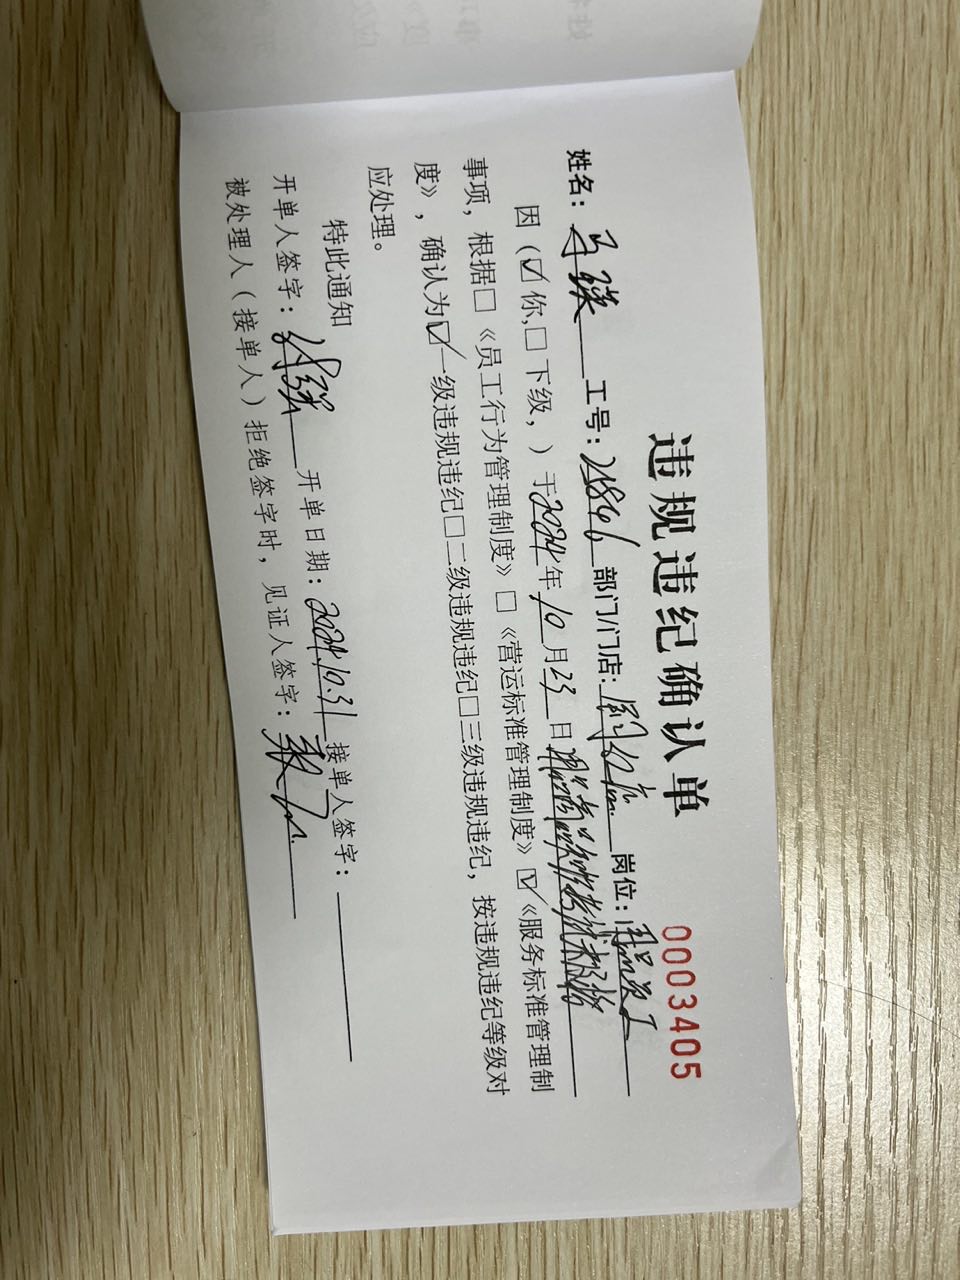 违规违纪确认单
0003405
姓名： 工号：21846 部门/门店： 岗位：
因（☑你,□下级，）于2024年10月23日
事项，根据□《员工行为管理制度》□《营运标准管理制度》☑《服务标准管理制
度》，确认为☑一级违规违纪□二级违规违纪□三级违规违纪，按违规违纪等级对
应处理。
特此通知
开单人签字： 开单日期：2024.10.31 接单人签字：
被处理人（接单人）拒绝签字时，见证人签字：